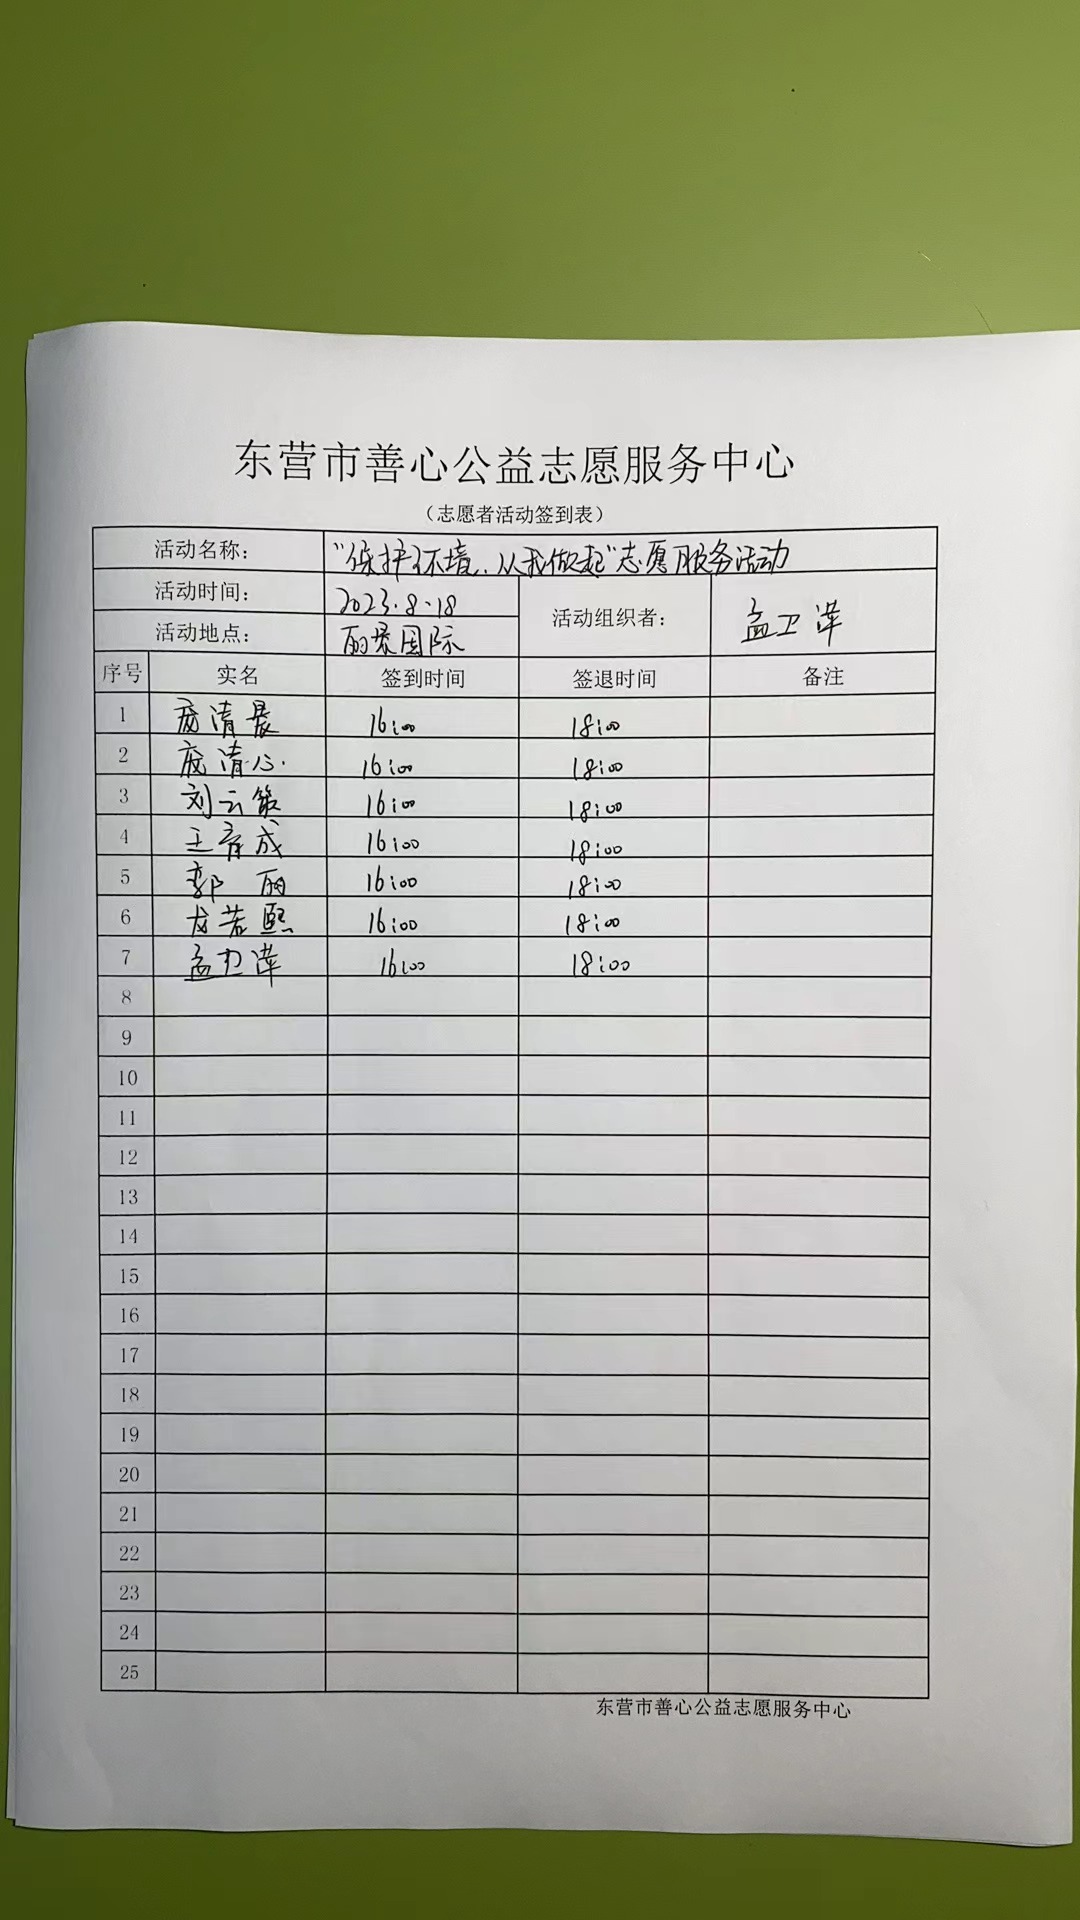 东营市善心公益志愿服务中心
（志愿者活动签到表）
活动名称： "保护环境、从我做起"志愿服务活动
活动时间： 2023.8.18 活动组织者： 孟卫泽
活动地点： 丽景国际
序号 实名 签到时间 签退时间 备注
1 庞清晨 16:00 18:00
2 庞清心 16:00 18:00
3 刘云策 16:00 18:00
4 王彦成 16:00 18:00
5 郭丽 16:00 18:00
6 龙若熙 16:00 18:00
7 孟卫泽 16:00 18:00
8
9
10
11
12
13
14
15
16
17
18
19
20
21
22
23
24
25
东营市善心公益志愿服务中心